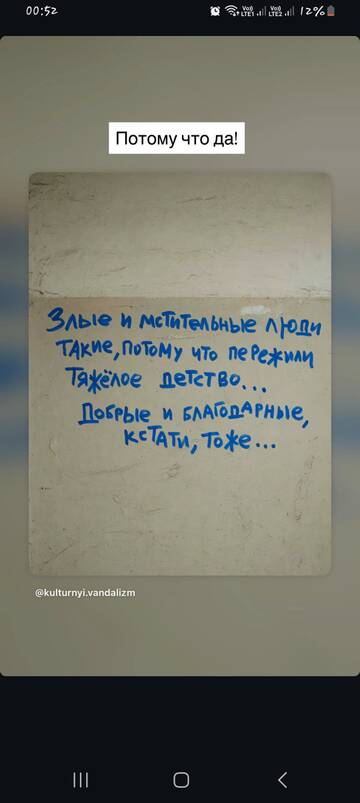 00:52
Vo)) LTE1 Vo)) LTE2 12%
Потому что да!
Злые и мстительные люди
такие, потому что пережили
тяжёлое детство...
Добрые и благодарные,
кстати, тоже...
@kulturnyi.vandalizm